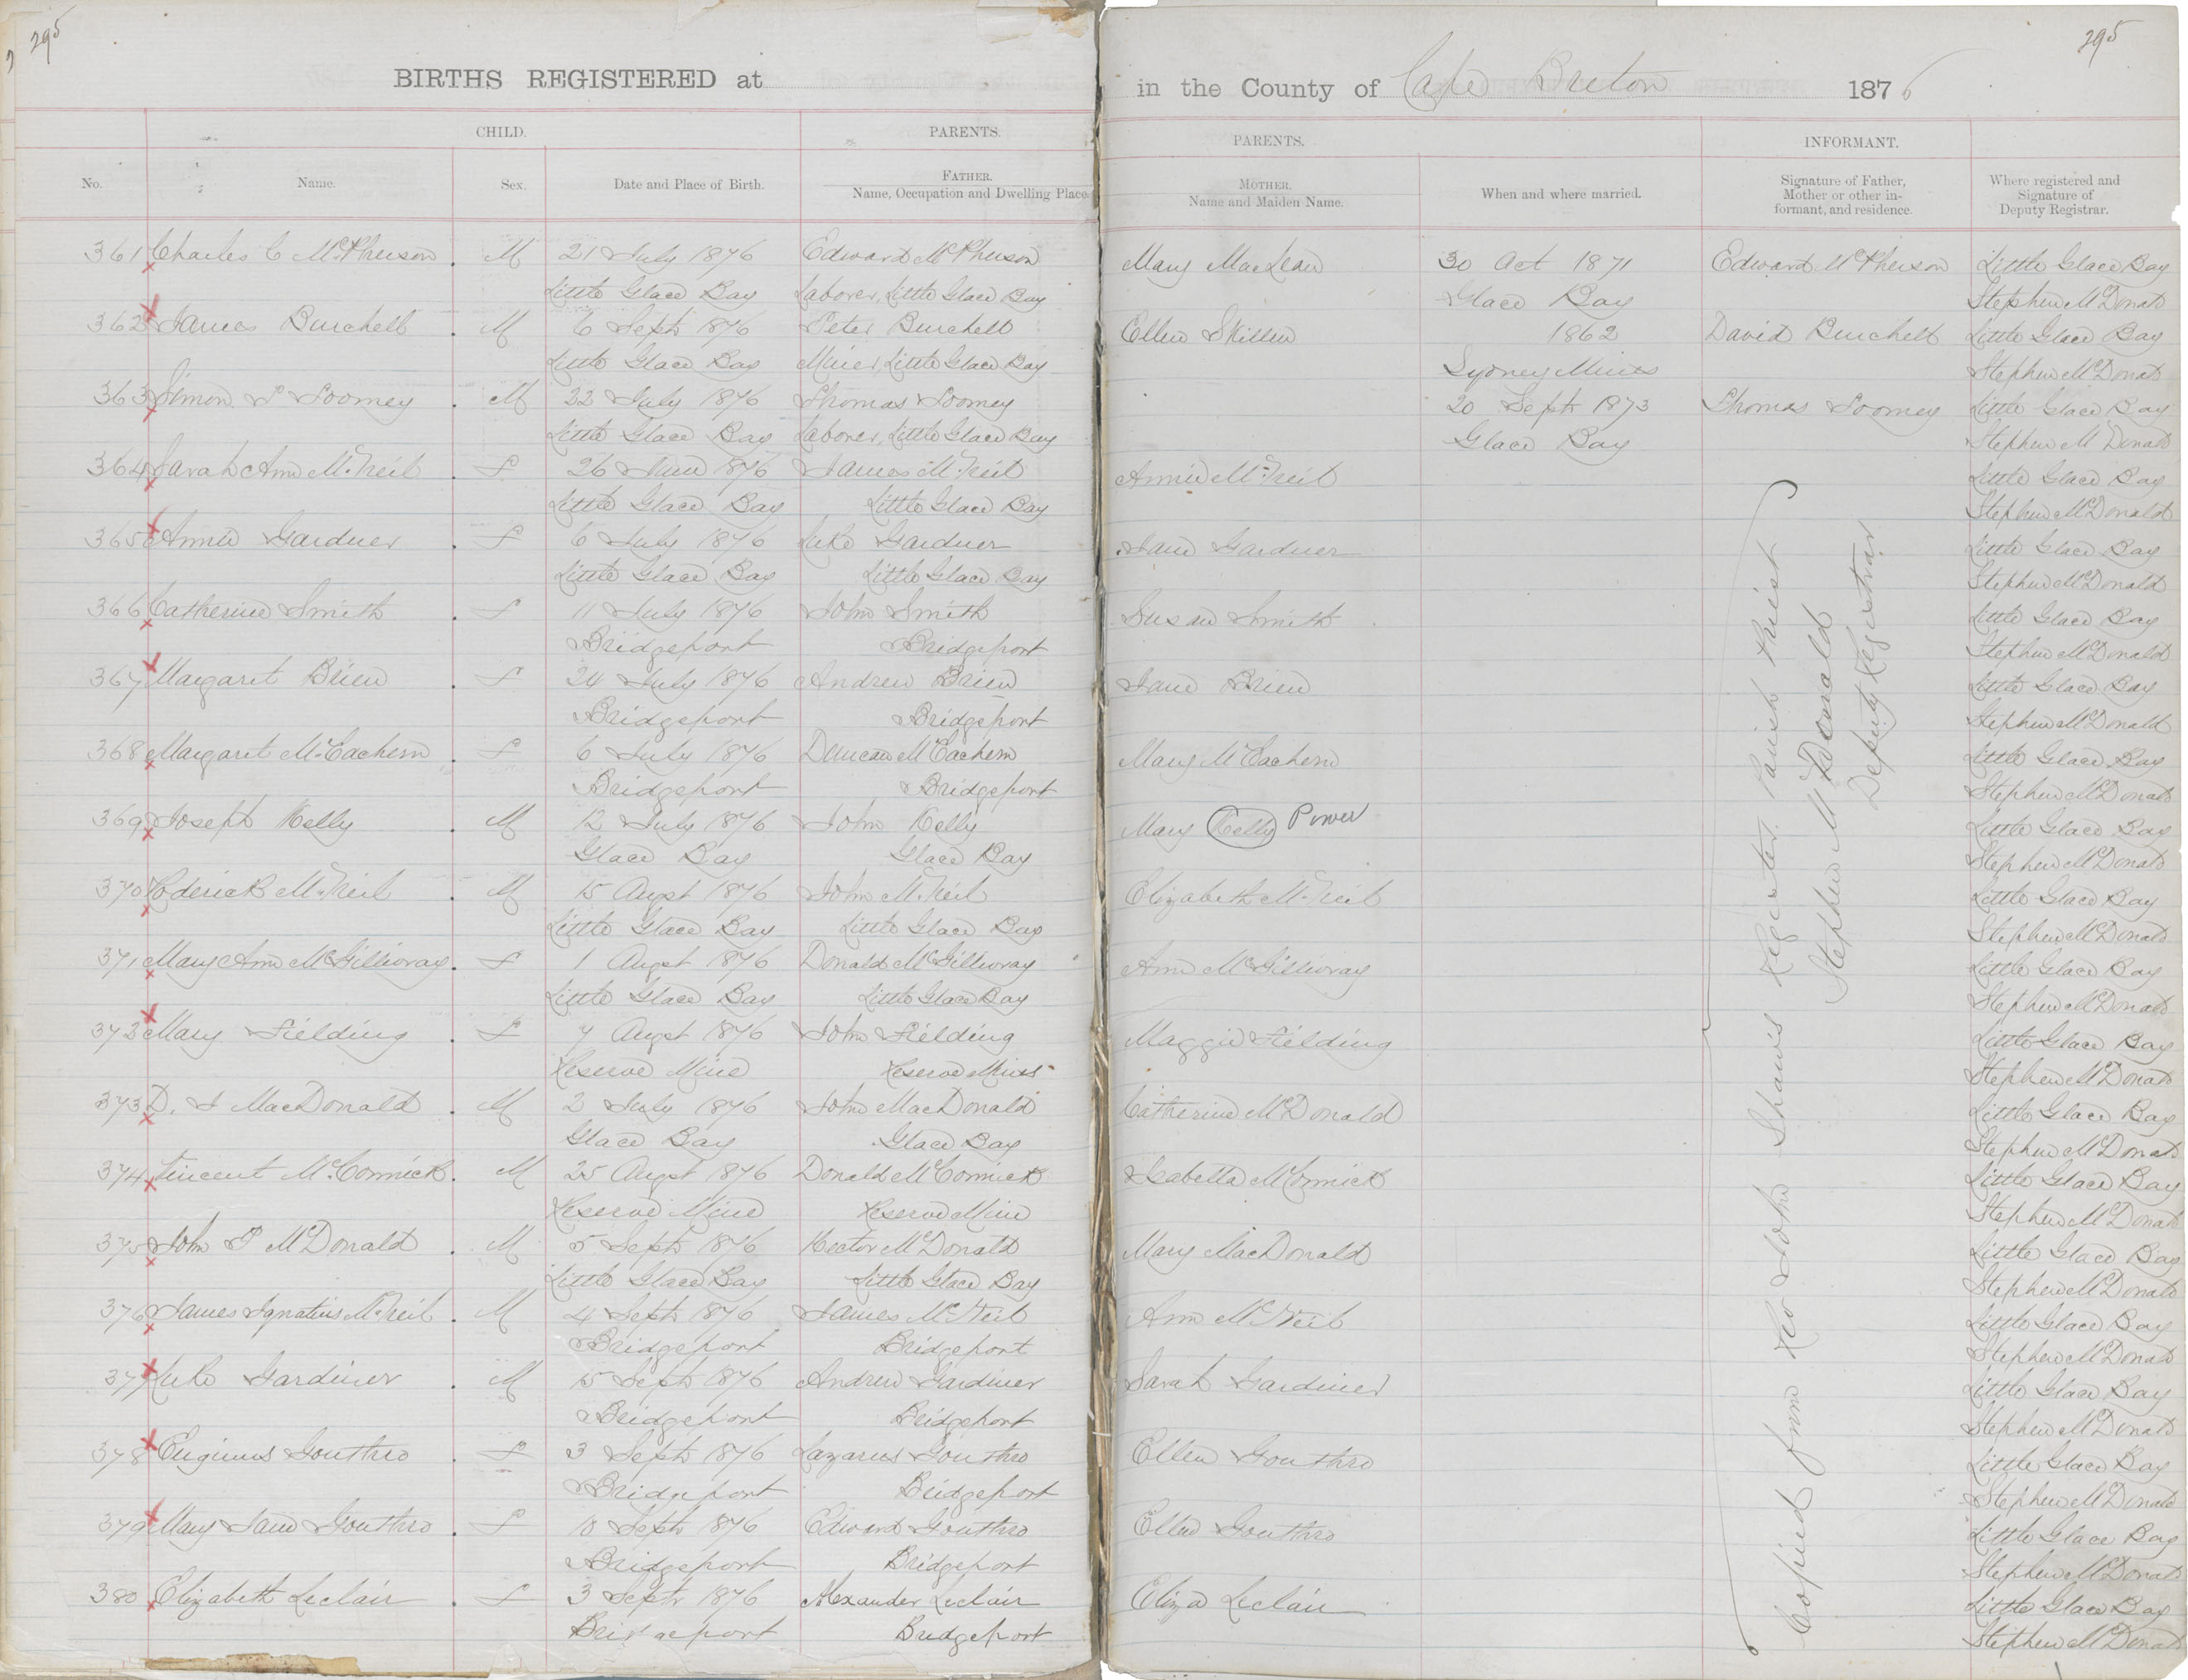 295
295
BIRTHS REGISTERED at
in the County of Cape Breton 1876
CHILD.
PARENTS.
PARENTS.
INFORMANT.
No.
Name.
Sex.
Date and Place of Birth.
FATHER.
Name, Occupation and Dwelling Place.
MOTHER.
Name and Maiden Name.
When and where married.
Signature of Father,
Mother or other in-
formant, and residence.
Where registered and
Signature of
Deputy Registrar.
361 Charles C McPherson . M 21 July 1876 Edward McPherson Mary MacLean 30 Oct 1871 Edward McPherson Little Glace Bay
Little Glace Bay Laborer, Little Glace Bay Glace Bay Stephen McDonald
362 James Burchell . M 6 Sept 1876 Peter Burchell Ellen Skillen 1862 David Burchell Little Glace Bay
Little Glace Bay Miner, Little Glace Bay Sydney Mines Stephen McDonald
363 Simon P Toomey . M 22 July 1876 Thomas Toomey 20 Sept 1873 Thomas Toomey Little Glace Bay
Little Glace Bay Laborer, Little Glace Bay Glace Bay Stephen McDonald
364 Sarah Ann McNeil . F 26 June 1876 James McNeil Annie McNeil Little Glace Bay
Little Glace Bay Little Glace Bay Stephen McDonald
365 Annie Gardner . F 6 July 1876 Luke Gardner Jane Gardner Little Glace Bay
Little Glace Bay Little Glace Bay Stephen McDonald
366 Catherine Smith . F 11 July 1876 John Smith Susan Smith Little Glace Bay
Bridgeport Bridgeport Stephen McDonald
367 Margaret Brien . F 24 July 1876 Andrew Brien Jane Brien Little Glace Bay
Bridgeport Bridgeport Stephen McDonald
368 Margaret McEachern . F 6 July 1876 Duncan McEachern Mary McEachern Little Glace Bay
Bridgeport Bridgeport Stephen McDonald
369 Joseph Kelly . M 12 July 1876 John Kelly Mary Kelly Power Little Glace Bay
Glace Bay Glace Bay Stephen McDonald
370 Roderick McNeil . M 15 Augt 1876 John McNeil Elizabeth McNeil Little Glace Bay
Little Glace Bay Little Glace Bay Stephen McDonald
371 Mary Ann McGillivray . F 1 Augt 1876 Donald McGillivray Ann McGillivray Little Glace Bay
Little Glace Bay Little Glace Bay Stephen McDonald
372 Mary Fielding . F 7 Augt 1876 John Fielding Maggie Fielding Little Glace Bay
Reserve Mine Reserve Mines Stephen McDonald
373 D. J MacDonald . M 2 July 1876 John MacDonald Catherine McDonald Little Glace Bay
Glace Bay Glace Bay Stephen McDonald
374 Vincent McCormick . M 25 Augt 1876 Donald McCormick Isabella McCormick Little Glace Bay
Reserve Mine Reserve Mine Stephen McDonald
375 John P McDonald . M 5 Sept 1876 Hector McDonald Mary MacDonald Little Glace Bay
Little Glace Bay Little Glace Bay Stephen McDonald
376 James Ignatius McNeil . M 4 Sept 1876 James McNeil Ann McNeil Little Glace Bay
Bridgeport Bridgeport Stephen McDonald
377 Luke Gardiner . M 15 Sept 1876 Andrew Gardiner Sarah Gardiner Little Glace Bay
Bridgeport Bridgeport Stephen McDonald
378 Gouthro . F 3 Sept 1876 Lazarus Gouthro Ellen Gouthro Little Glace Bay
Bridgeport Bridgeport Stephen McDonald
379 Mary Jane Gouthro . F 10 Sept 1876 Edward Gouthro Ellen Gouthro Little Glace Bay
Bridgeport Bridgeport Stephen McDonald
380 Elizabeth Leclair . F 3 Sept 1876 Alexander Leclair Eliza Leclair Little Glace Bay
Bridgeport Bridgeport Stephen McDonald
Copied from Rev John Shaw's Register Parish Priest
Stephen McDonald
Deputy Registrar